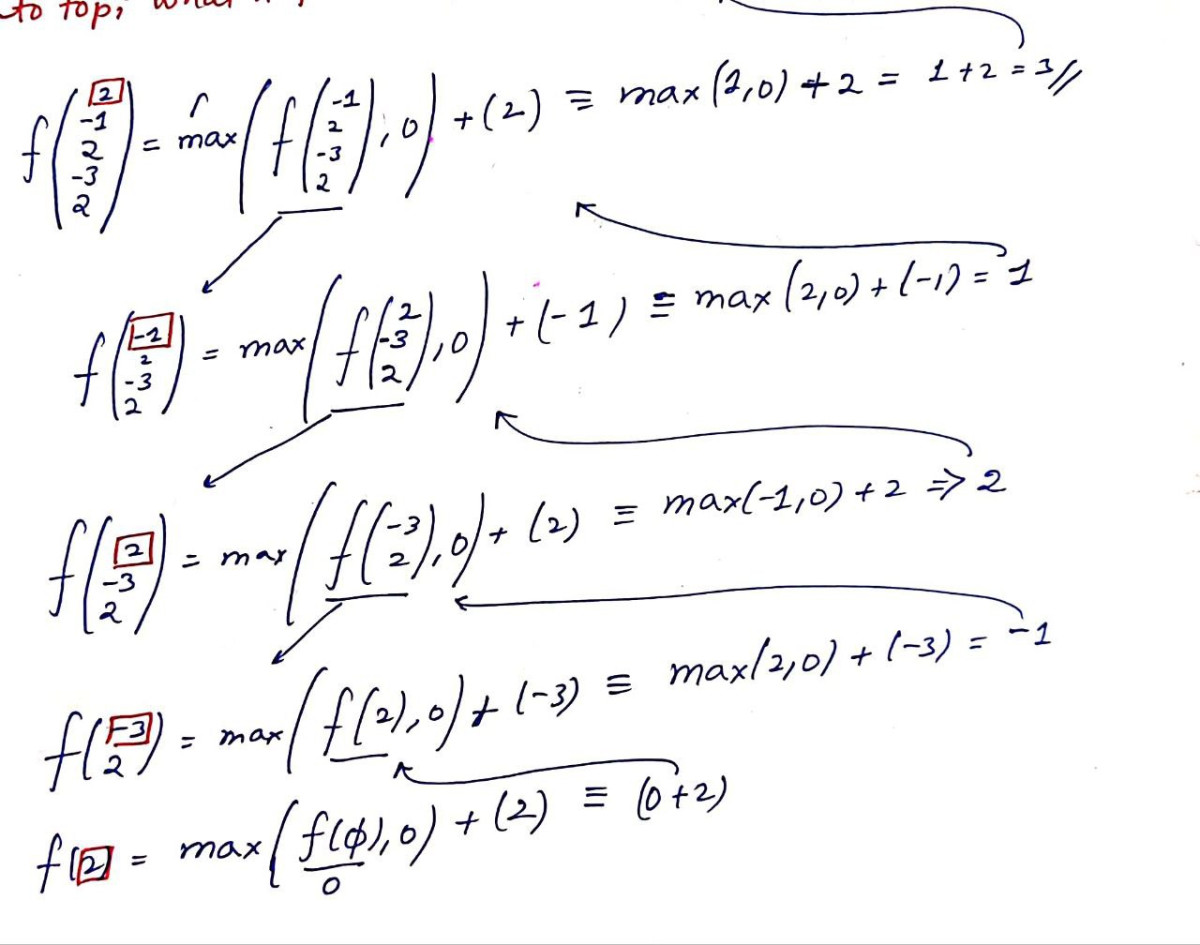 to top,
f(2 -1 2 -3 2) = max(f(-1 2 -3 2), 0) + (2) ≡ max(1,0) + 2 = 1+2 = 3//
f(-1 2 -3 2) = max(f(2 -3 2), 0) + (-1) ≡ max(2,0) + (-1) = 1
f(2 -3 2) = max(f(-3 2), 0) + (2) ≡ max(-1,0) + 2 => 2
f(-3 2) = max(f(2), 0) + (-3) ≡ max(2,0) + (-3) = -1
f(2) = max(f(φ), 0) + (2) ≡ (0+2)
0